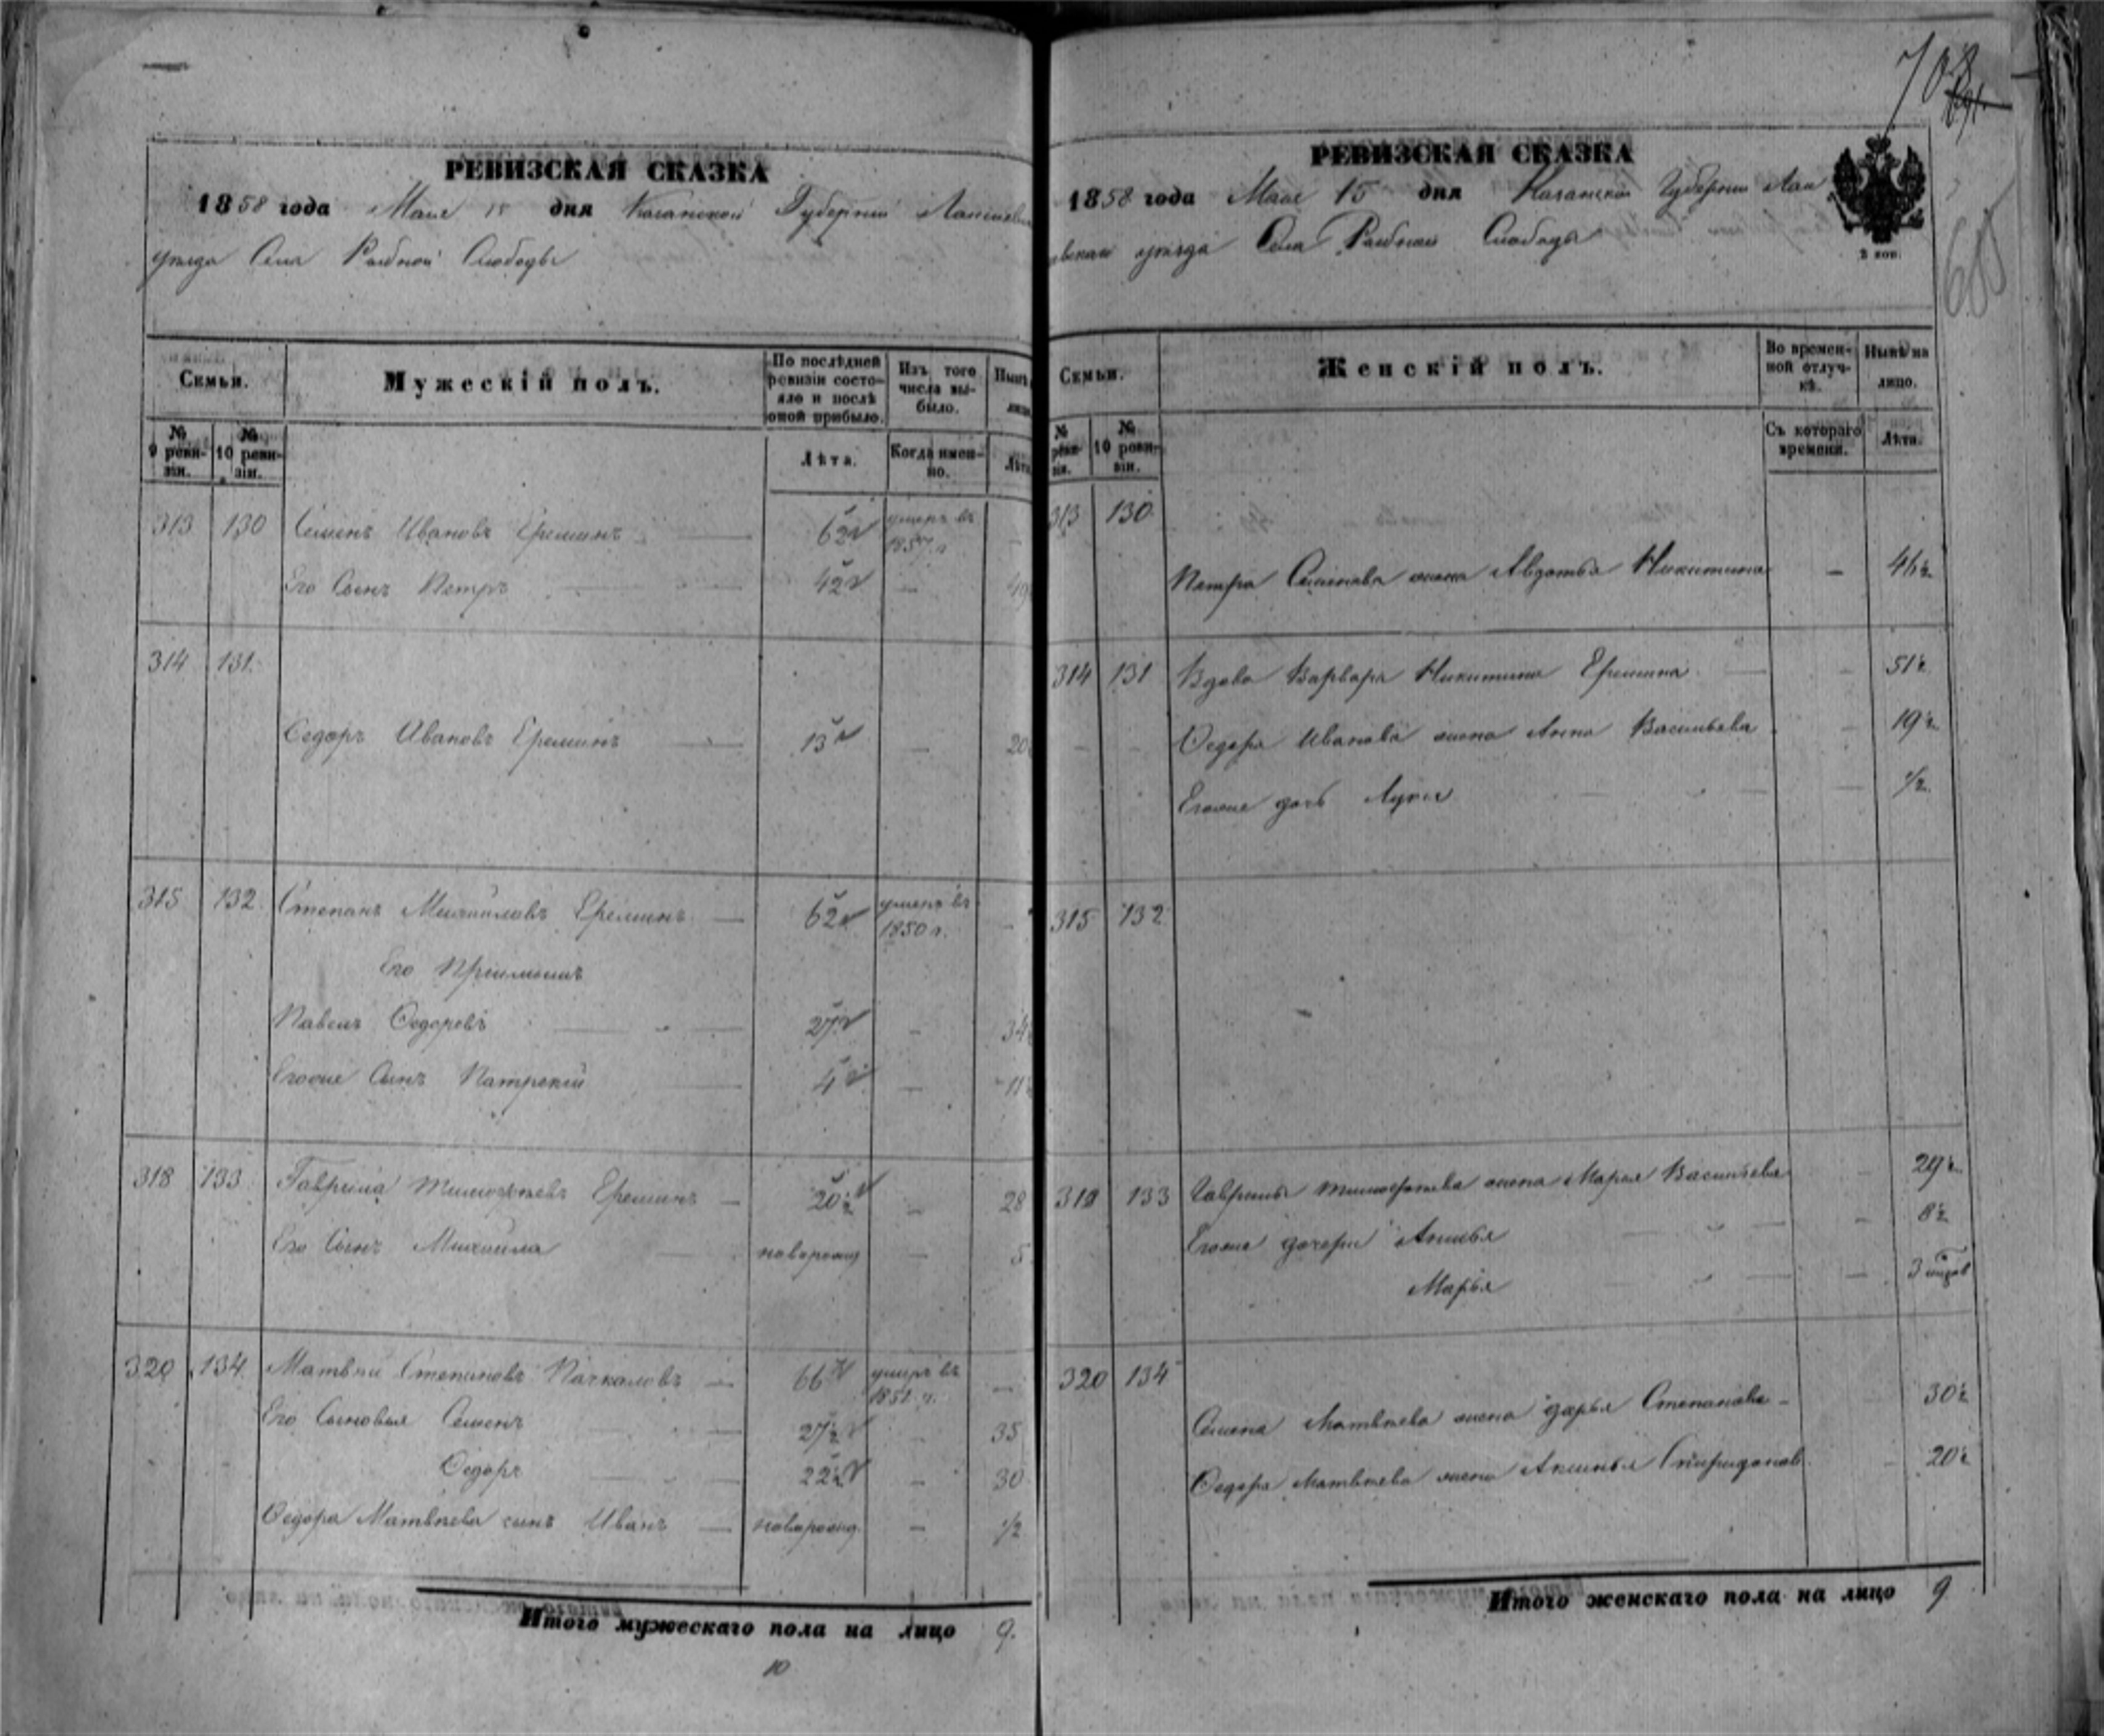 708
691
РЕВИЗСКАЯ СКАЗКА
1858 года Мая 15 дня Казанской Губернии Лаишев
уезда Села Рыбной Слободы
Семьи.
Мужескій полъ.
По послѣдней ревизіи состояло и послѣ оной прибыло.
Изъ того числа выбыло.
Нынѣ
№ 9 ревизіи.
№ 10 ревизіи.
Лѣта.
Когда именно.
Лѣта
313 130 Семенъ Ивановъ Еремин 62 умеръ въ 1857 г. —
Его Сынъ Петръ 42 — 49
314 131.
Федоръ Ивановъ Ереминъ 13 — 20
315 132 Степанъ Михайловъ Ереминъ 62 умеръ въ 1850 г. —
Его Пріимышъ
Павелъ Федоровъ 27 — 34
Егоже Сынъ Патрекій 4 — 11
318 133 Гаврила Тимофѣевъ Ереминъ 20½ — 28
Его Сынъ Михайла новорожд — 5
320 134 Матвѣй Степановъ Качкаловъ — 66 умеръ въ 185 г. —
Его Сыновья Семенъ 27½ 35
Федоръ 22½ — 30
Федора Матвѣева сынъ Иванъ — новорожд. — ½
Итого мужескаго пола на лицо 9.
10
РЕВИЗСКАЯ СКАЗКА
1858 года Мая 15 дня Казанской Губернии Лаи
шевскаго уѣзда Села Рыбной Слободы
2 коп.
Семьи.
Женскій полъ.
Во временной отлучкѣ.
Нынѣ на лицо.
№ ревизіи.
№ 10 ревизіи.
Съ котораго времени.
Лѣта.
313 130
Петра Семенова жена Авдотья Никитина — 46½
314 131 Вдова Варвара Никитина Еремина — 51½
Федора Иванова жена Анна Васильева 19½
Егоже дочь — ½
315 132
318 133 Гаврилы Тимофѣева жена Марья Васильева 29½
Егоже дочери Анисья — 8½
Марья — 3 нед
320 134
Семена Матвѣева жена Дарья Степанова — 30½
Федора Матвѣева жена Аксинья Спиридонов 20½
Итого женскаго пола на лицо 9.